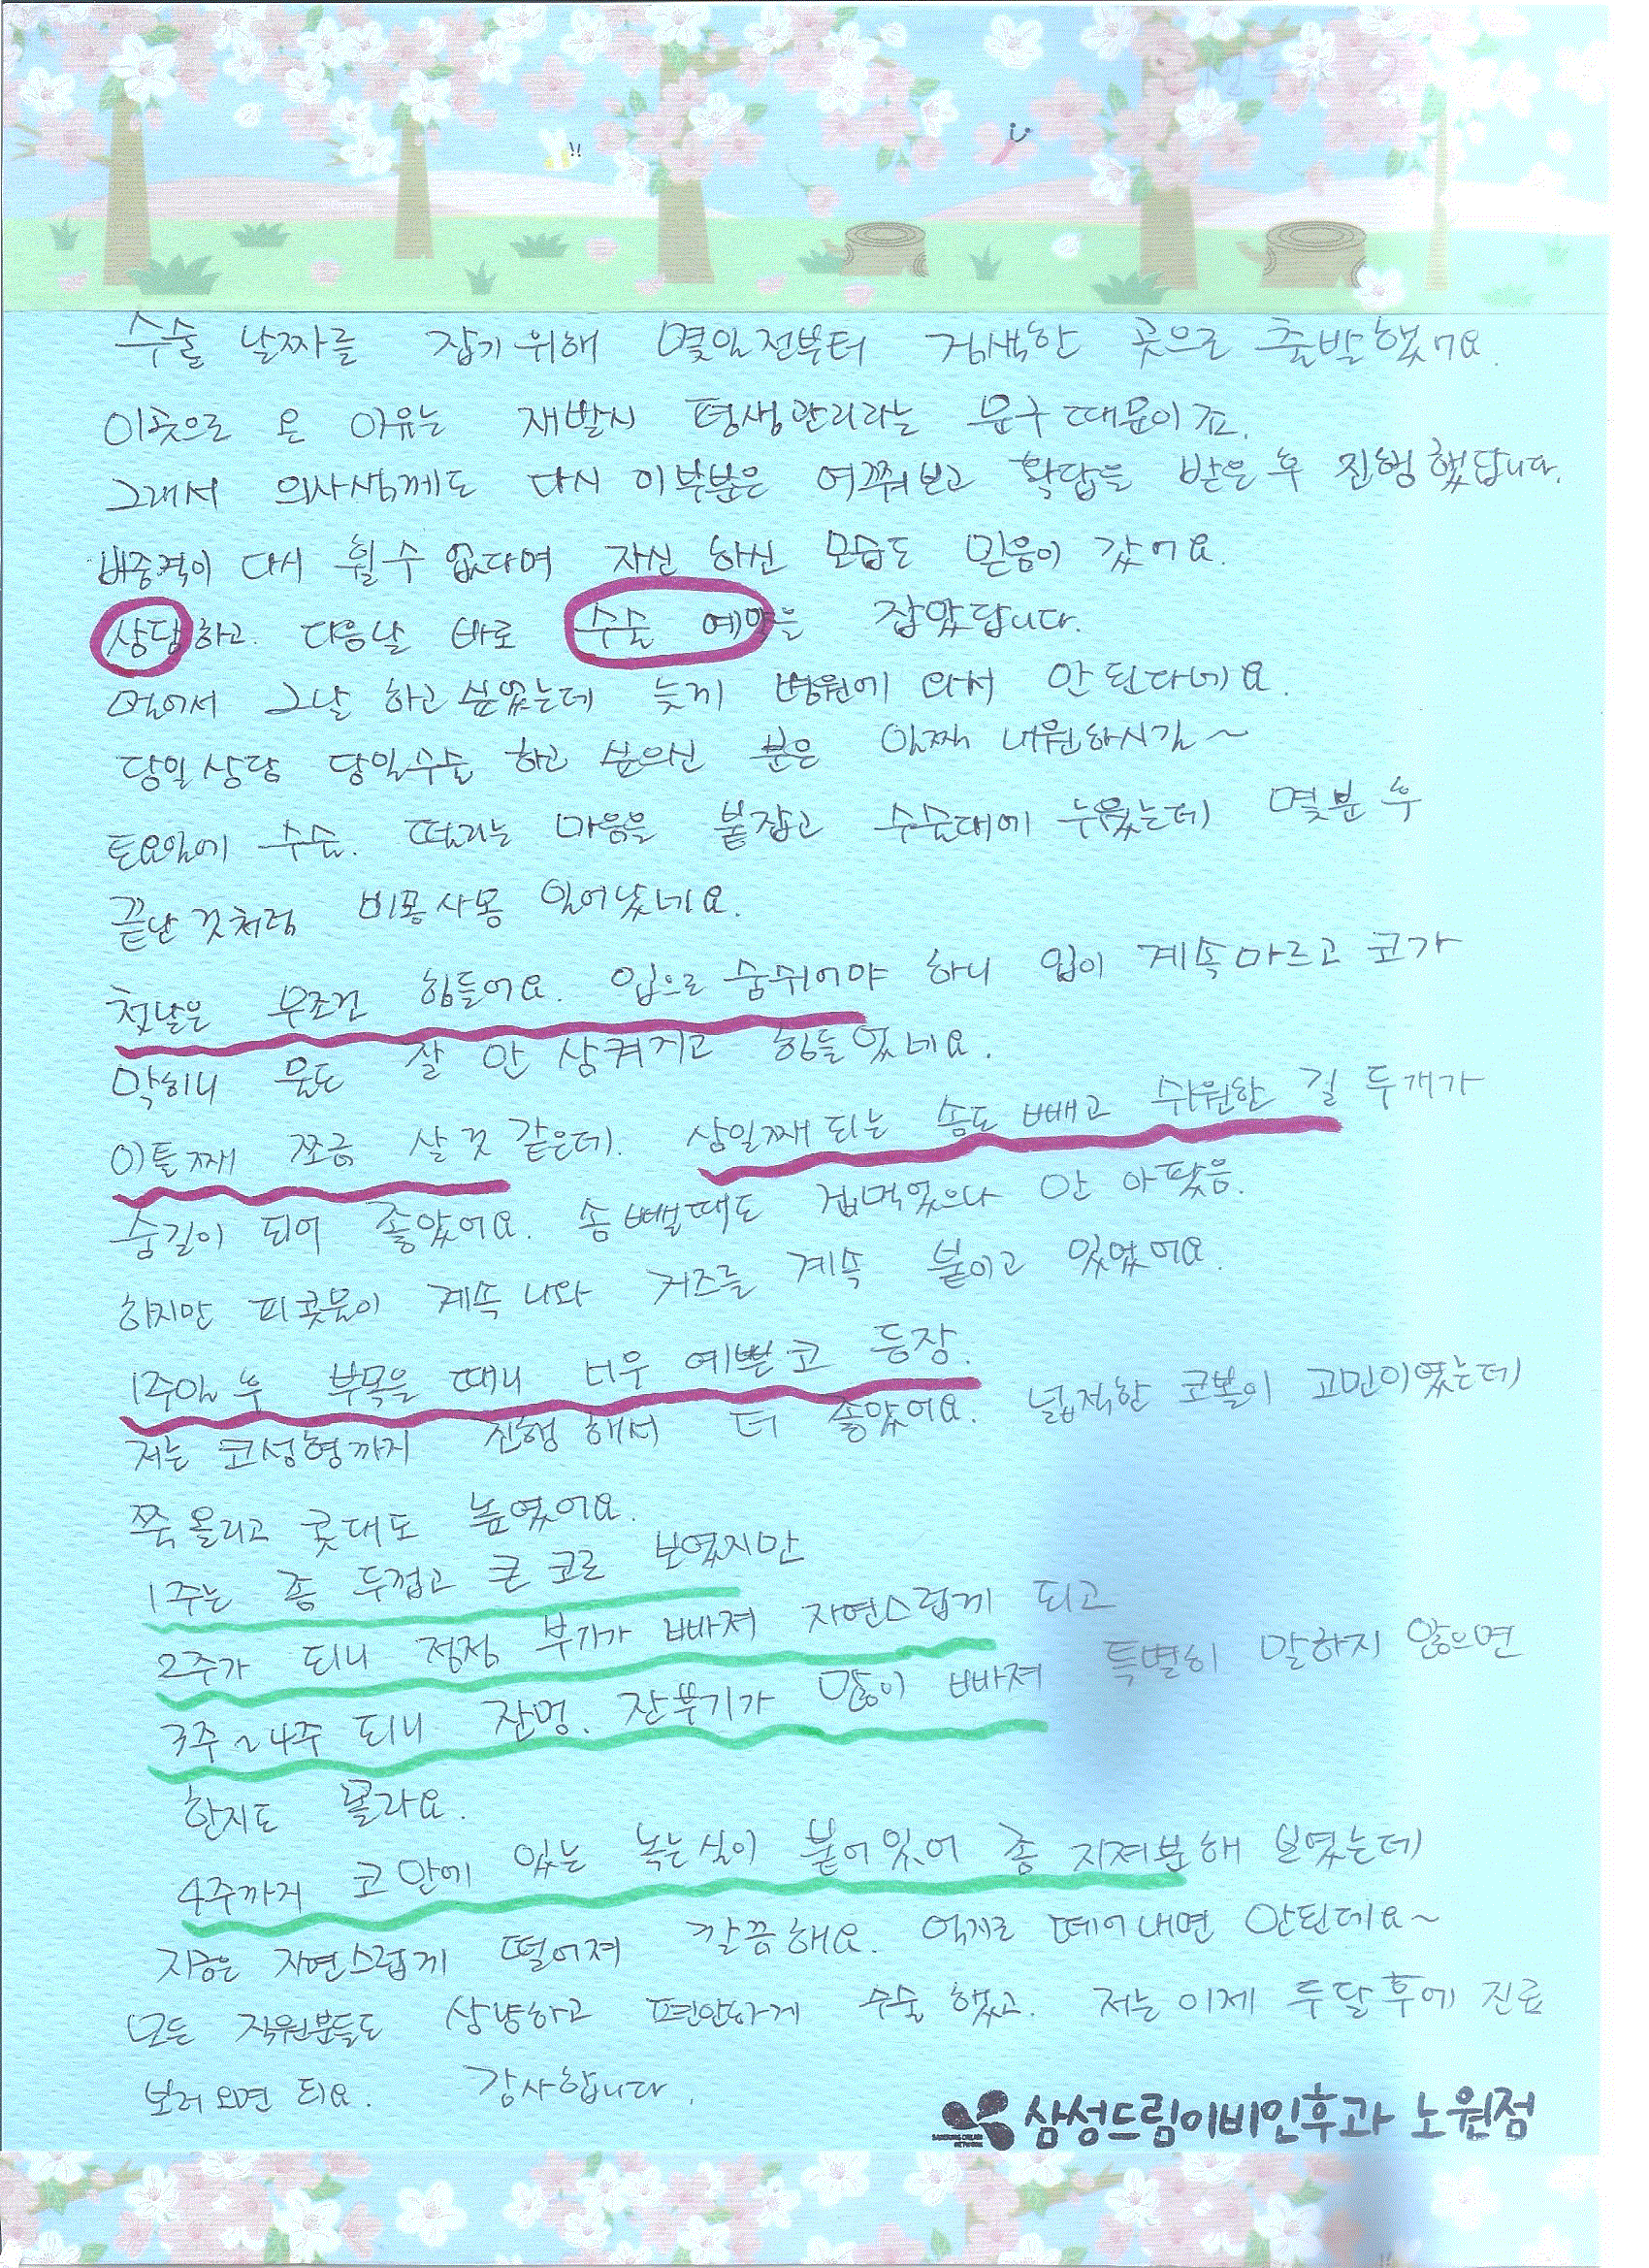 수술 날짜를 잡기위해 몇일전부터 검색한 곳으로 출발했어요.
이곳으로 온 이유는 재발시 평생관리라는 문구 때문이죠.
그래서 의사샘께도 다시 이부분은 여쭤보고 확답을 받은 후 진행했답니다.
비중격이 다시 휠 수 없다며 자신 하신 모습도 믿음이 갔어요.
상담하고. 다음날 바로 수술 예약을 잡았답니다.
멀어서 그날 하고싶었는데 늦게 병원에 와서 안된다네요.
당일상담 당일수술 하고 싶으신 분은 일찍 내원하시길~
토요일에 수술. 떨리는 마음을 붙잡고 수술대에 누웠는데 몇분 후
끝난 것처럼 비몽사몽 일어났네요.
첫날은 무조건 힘들어요. 입으로 숨쉬어야 하니 입이 계속마르고 코가
막히니 물도 잘 안 삼켜지고 힘들었네요.
이틀째 쪼금 살 것 같은데. 삼일째 되는 솜도 빼고 쉬원한 길 두개가
숨길이 되어 좋았어요. 솜 뺄때도 겁먹었으나 안 아팠음.
하지만 피콧물이 계속 나와 거즈를 계속 붙이고 있었어요.
1주일 후 부목을 때니 너무 예쁜 코 등장.
저는 코성형까지 진행 해서 더 좋았어요. 넓적한 코볼이 고민이였는데
쭉 올리고 콧대도 높였어요.
1주는 좀 두껍고 큰 코로 보였지만
2주가 되니 점점 부기가 빠져 자연스럽게 되고
3주~4주 되니 잔멍. 잔뿌기가 많이 빠져 특별히 말하지 않으면
한지도 몰라요.
4주까지 코 안에 있는 녹는실이 붙어있어 좀 지저분해 보였는데
지금은 자연스럽게 떨어져 깔끔해요. 억지로 떼어내면 안된데요~
모든 직원분들도 상냥하고 편안하게 수술 했고. 저는 이제 두달후에 진료
보러오면 되요. 감사합니다.
삼성드림이비인후과 노원점